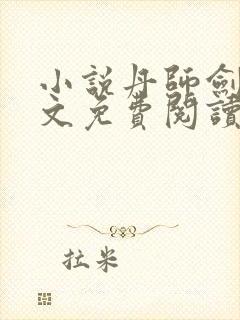 小說丹師劍
文免費閱讀
拉米